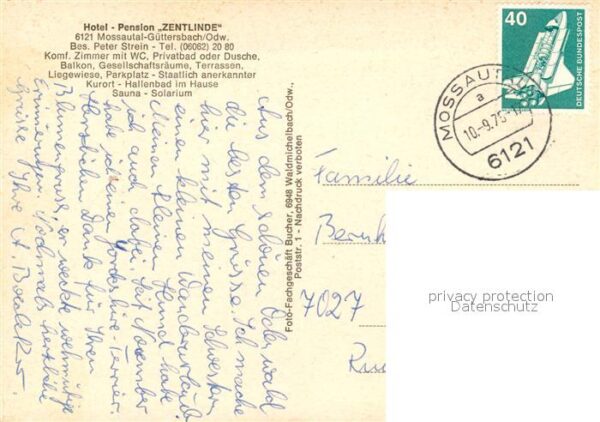 Hotel - Pension „ZENTLINDE"
6121 Mossautal-Güttersbach/Odw.
Bes. Peter Strein - Tel. (06062) 20 80
Komf. Zimmer mit WC, Privatbad oder Dusche,
Balkon, Gesellschaftsräume, Terrassen,
Liegewiese, Parkplatz - Staatlich anerkannter
Kurort - Hallenbad im Hause
Sauna - Solarium
Aus dem schönen Odenwald
die besten Grüsse. Ich mache
hier mit meinen Schwestern
einen kleinen Wanderurlaub
Meinen kleinen Hund habe
ich auch dabei. Seit November
habe ich einen Yorkshire-Terrier.
Herzlichen Dank für Ihren
Blumengruss, er weckte wehmütige
Erinnerungen. Nochmals herzliche
Grüsse Ihre A.
Foto-Fachgeschäft Bucher, 6948 Waldmichelbach/Odw.,
Poststr. 1 - Nachdruck verboten
40
DEUTSCHE BUNDESPOST
MOSSAUTAL
a
10.-9.75
6121
Familie
7027
privacy protection
Datenschutz